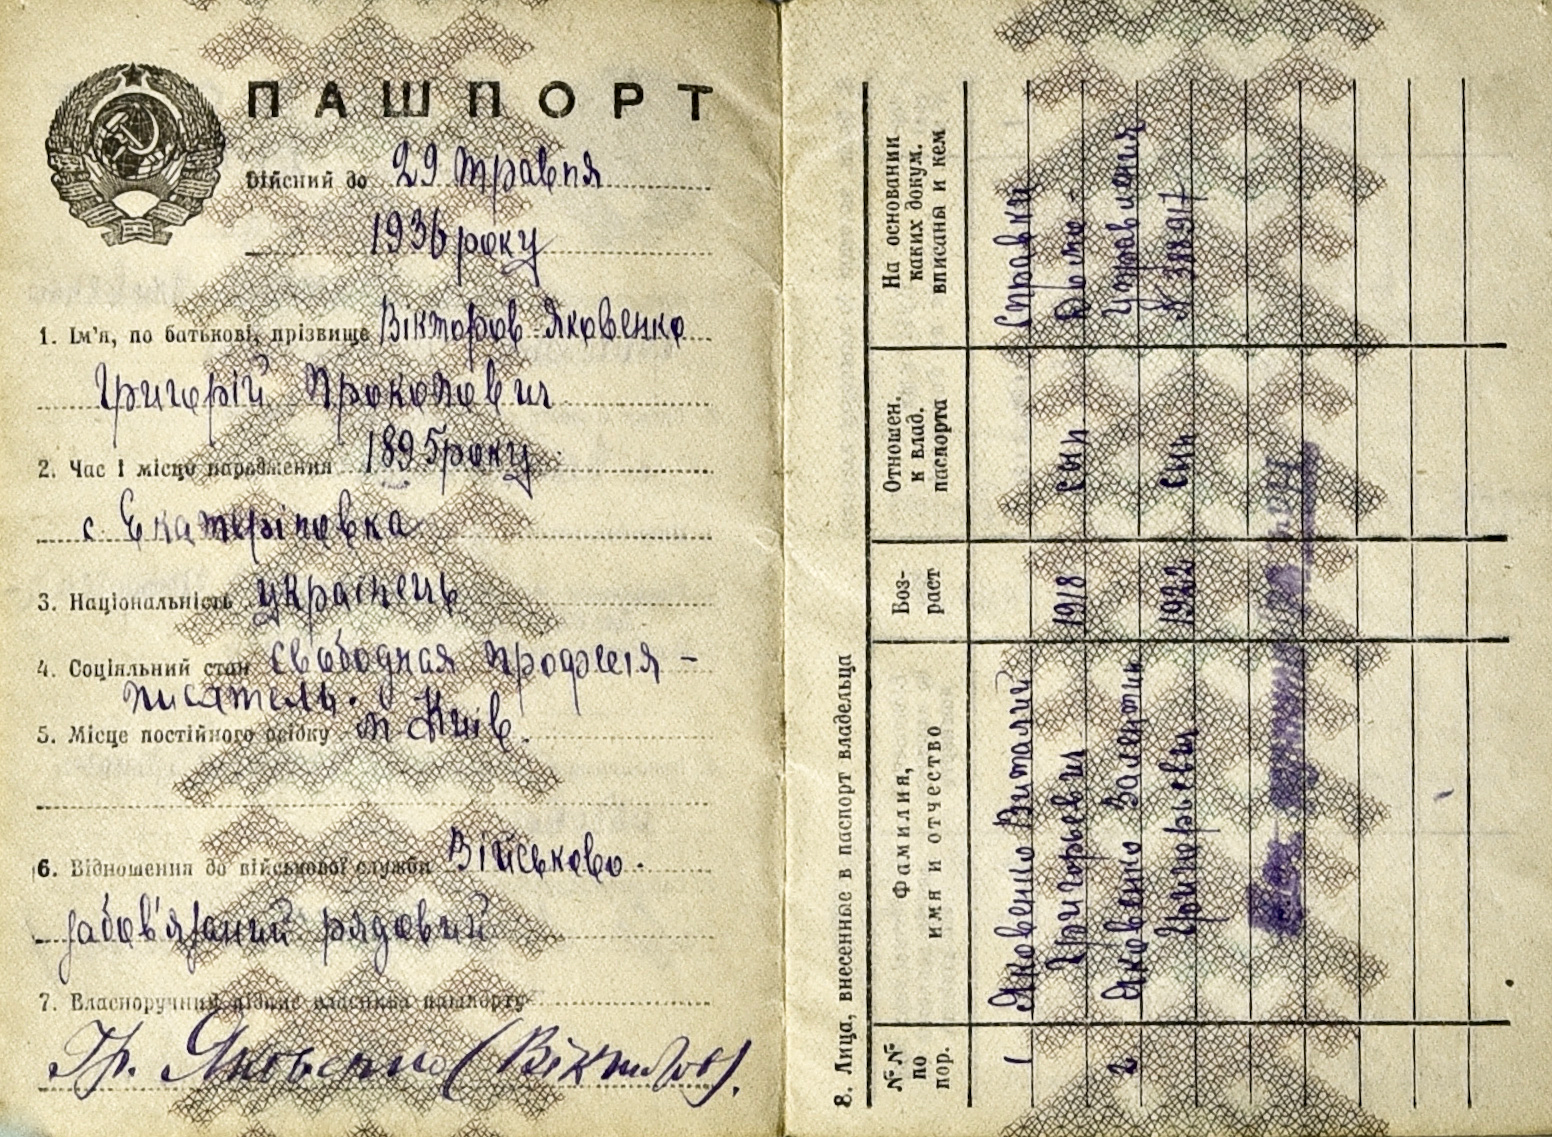 ПАШПОРТ
Дійсний до 29 травня
1936 року
1. Ім'я, по батькові, прізвище Вікторов-Яковенко
Григорій Прокопович
2. Час і місце народження 1895 року
с. Екатеріновка
3. Національність українець
4. Соціяльний стан свободная професія –
писатель.
5. Місце постійного осідку м Київ.
6. Відношення до військової служби Військово-
забов'язаний рядовий
7. Власноручний підпис власника пашпорту
Гр. Яковенко (Вікторов).
8. Лица, внесенные в паспорт владельца
№№ по пор.
Фамилия, имя и отчество
Воз-раст
Отношен. к влад. паспорта
На основании каких докум. вписаны и кем
1 Яковенко Виталий Справки
Григорьевич 1918 сын Домо-
2 Яковенко Валентин управления
Григорьевич 1922 сын № 388917